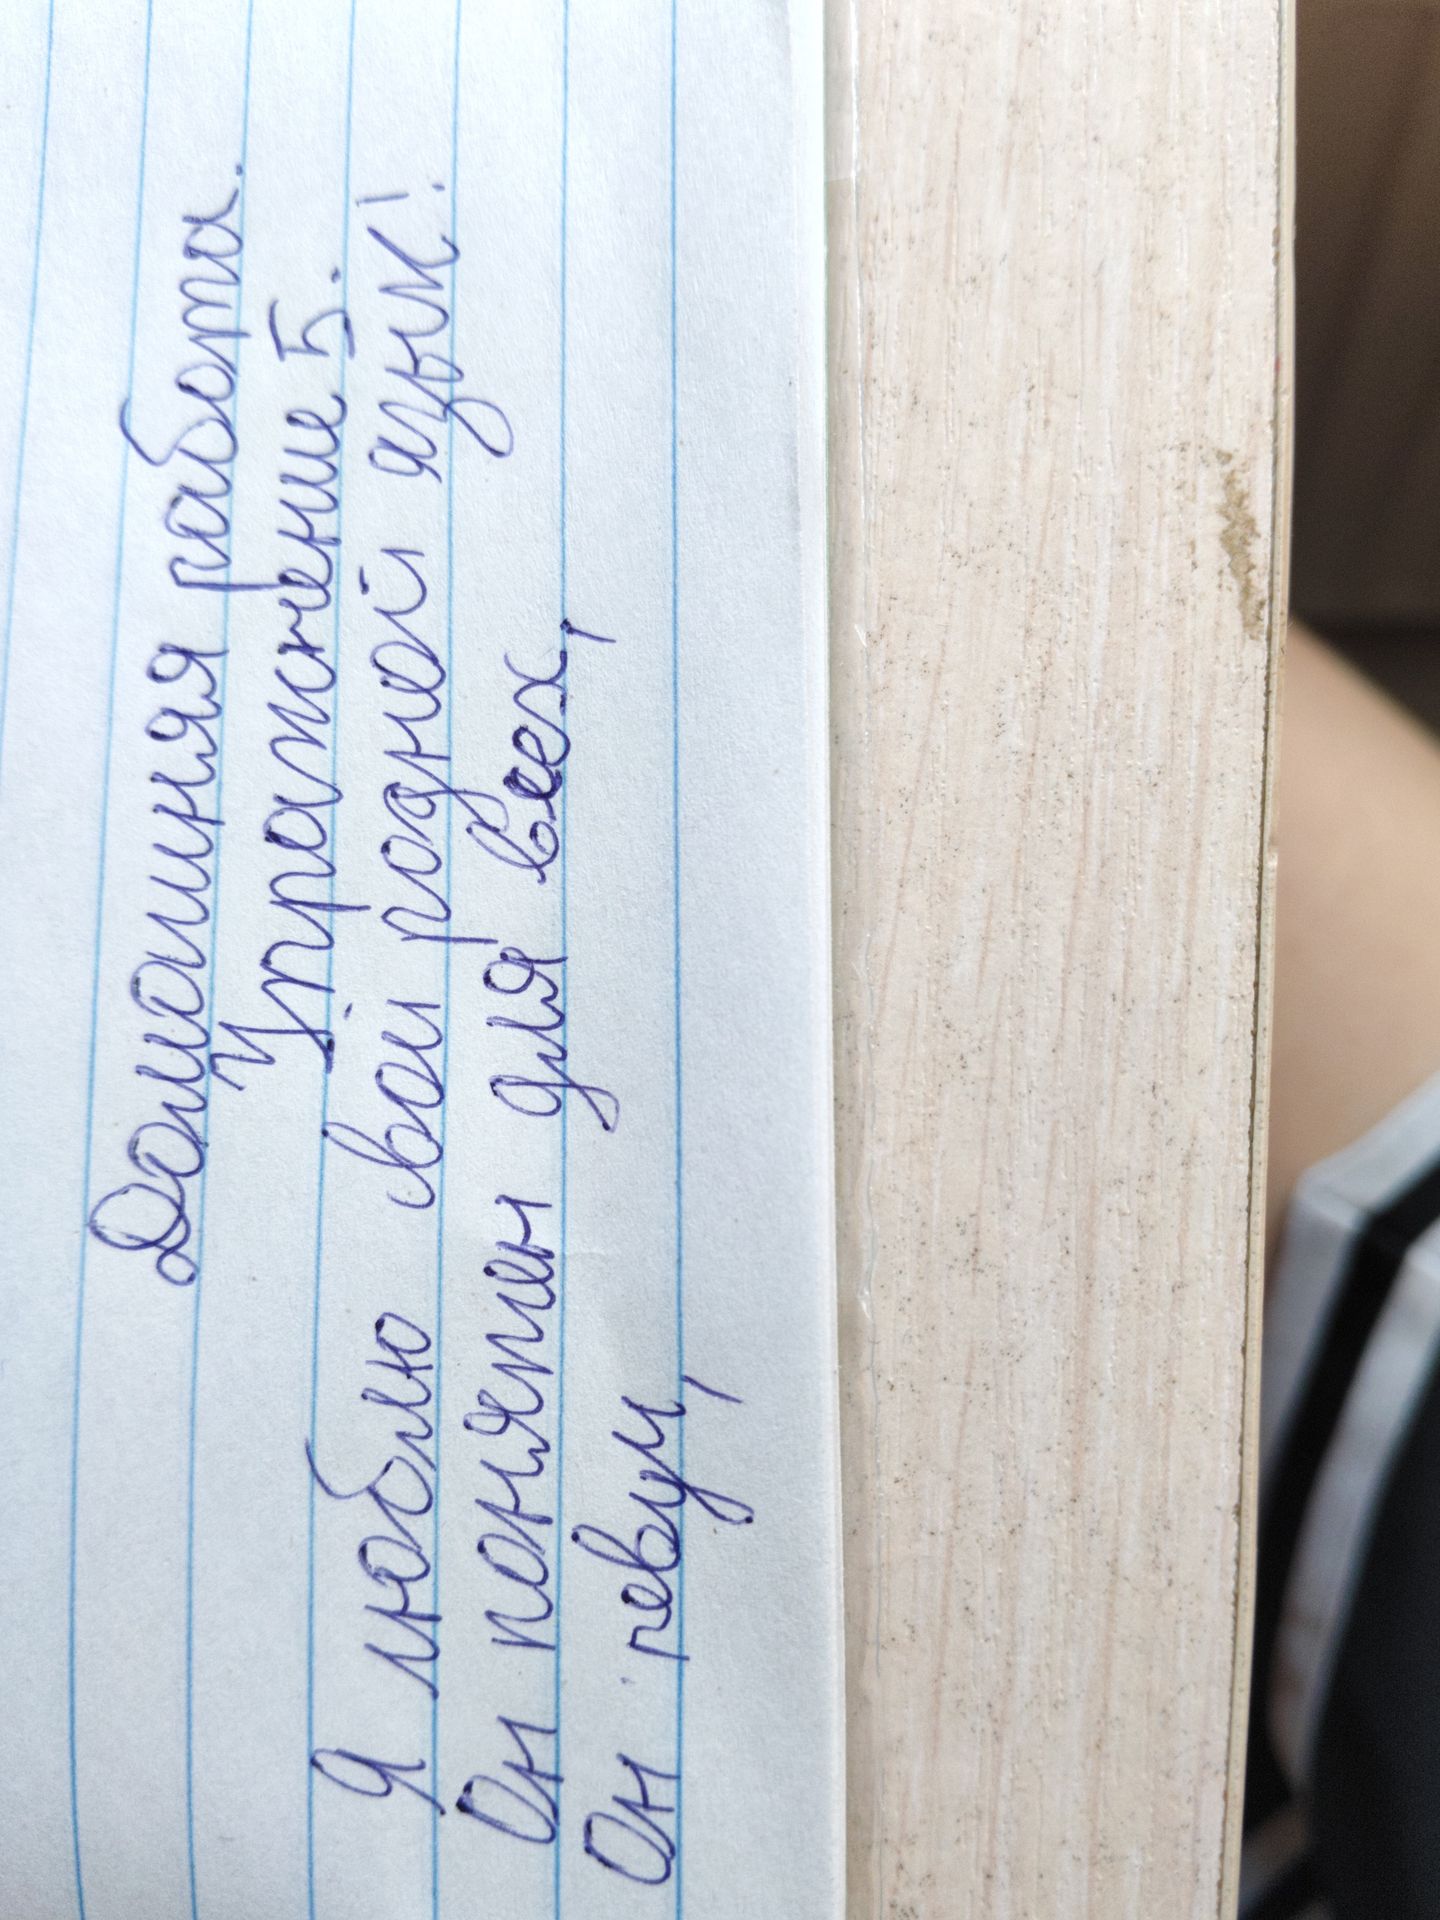 Домашняя работа.
Упражнение 5.
Я люблю свой родной язык!
Он понятен для всех,
Он певуч,